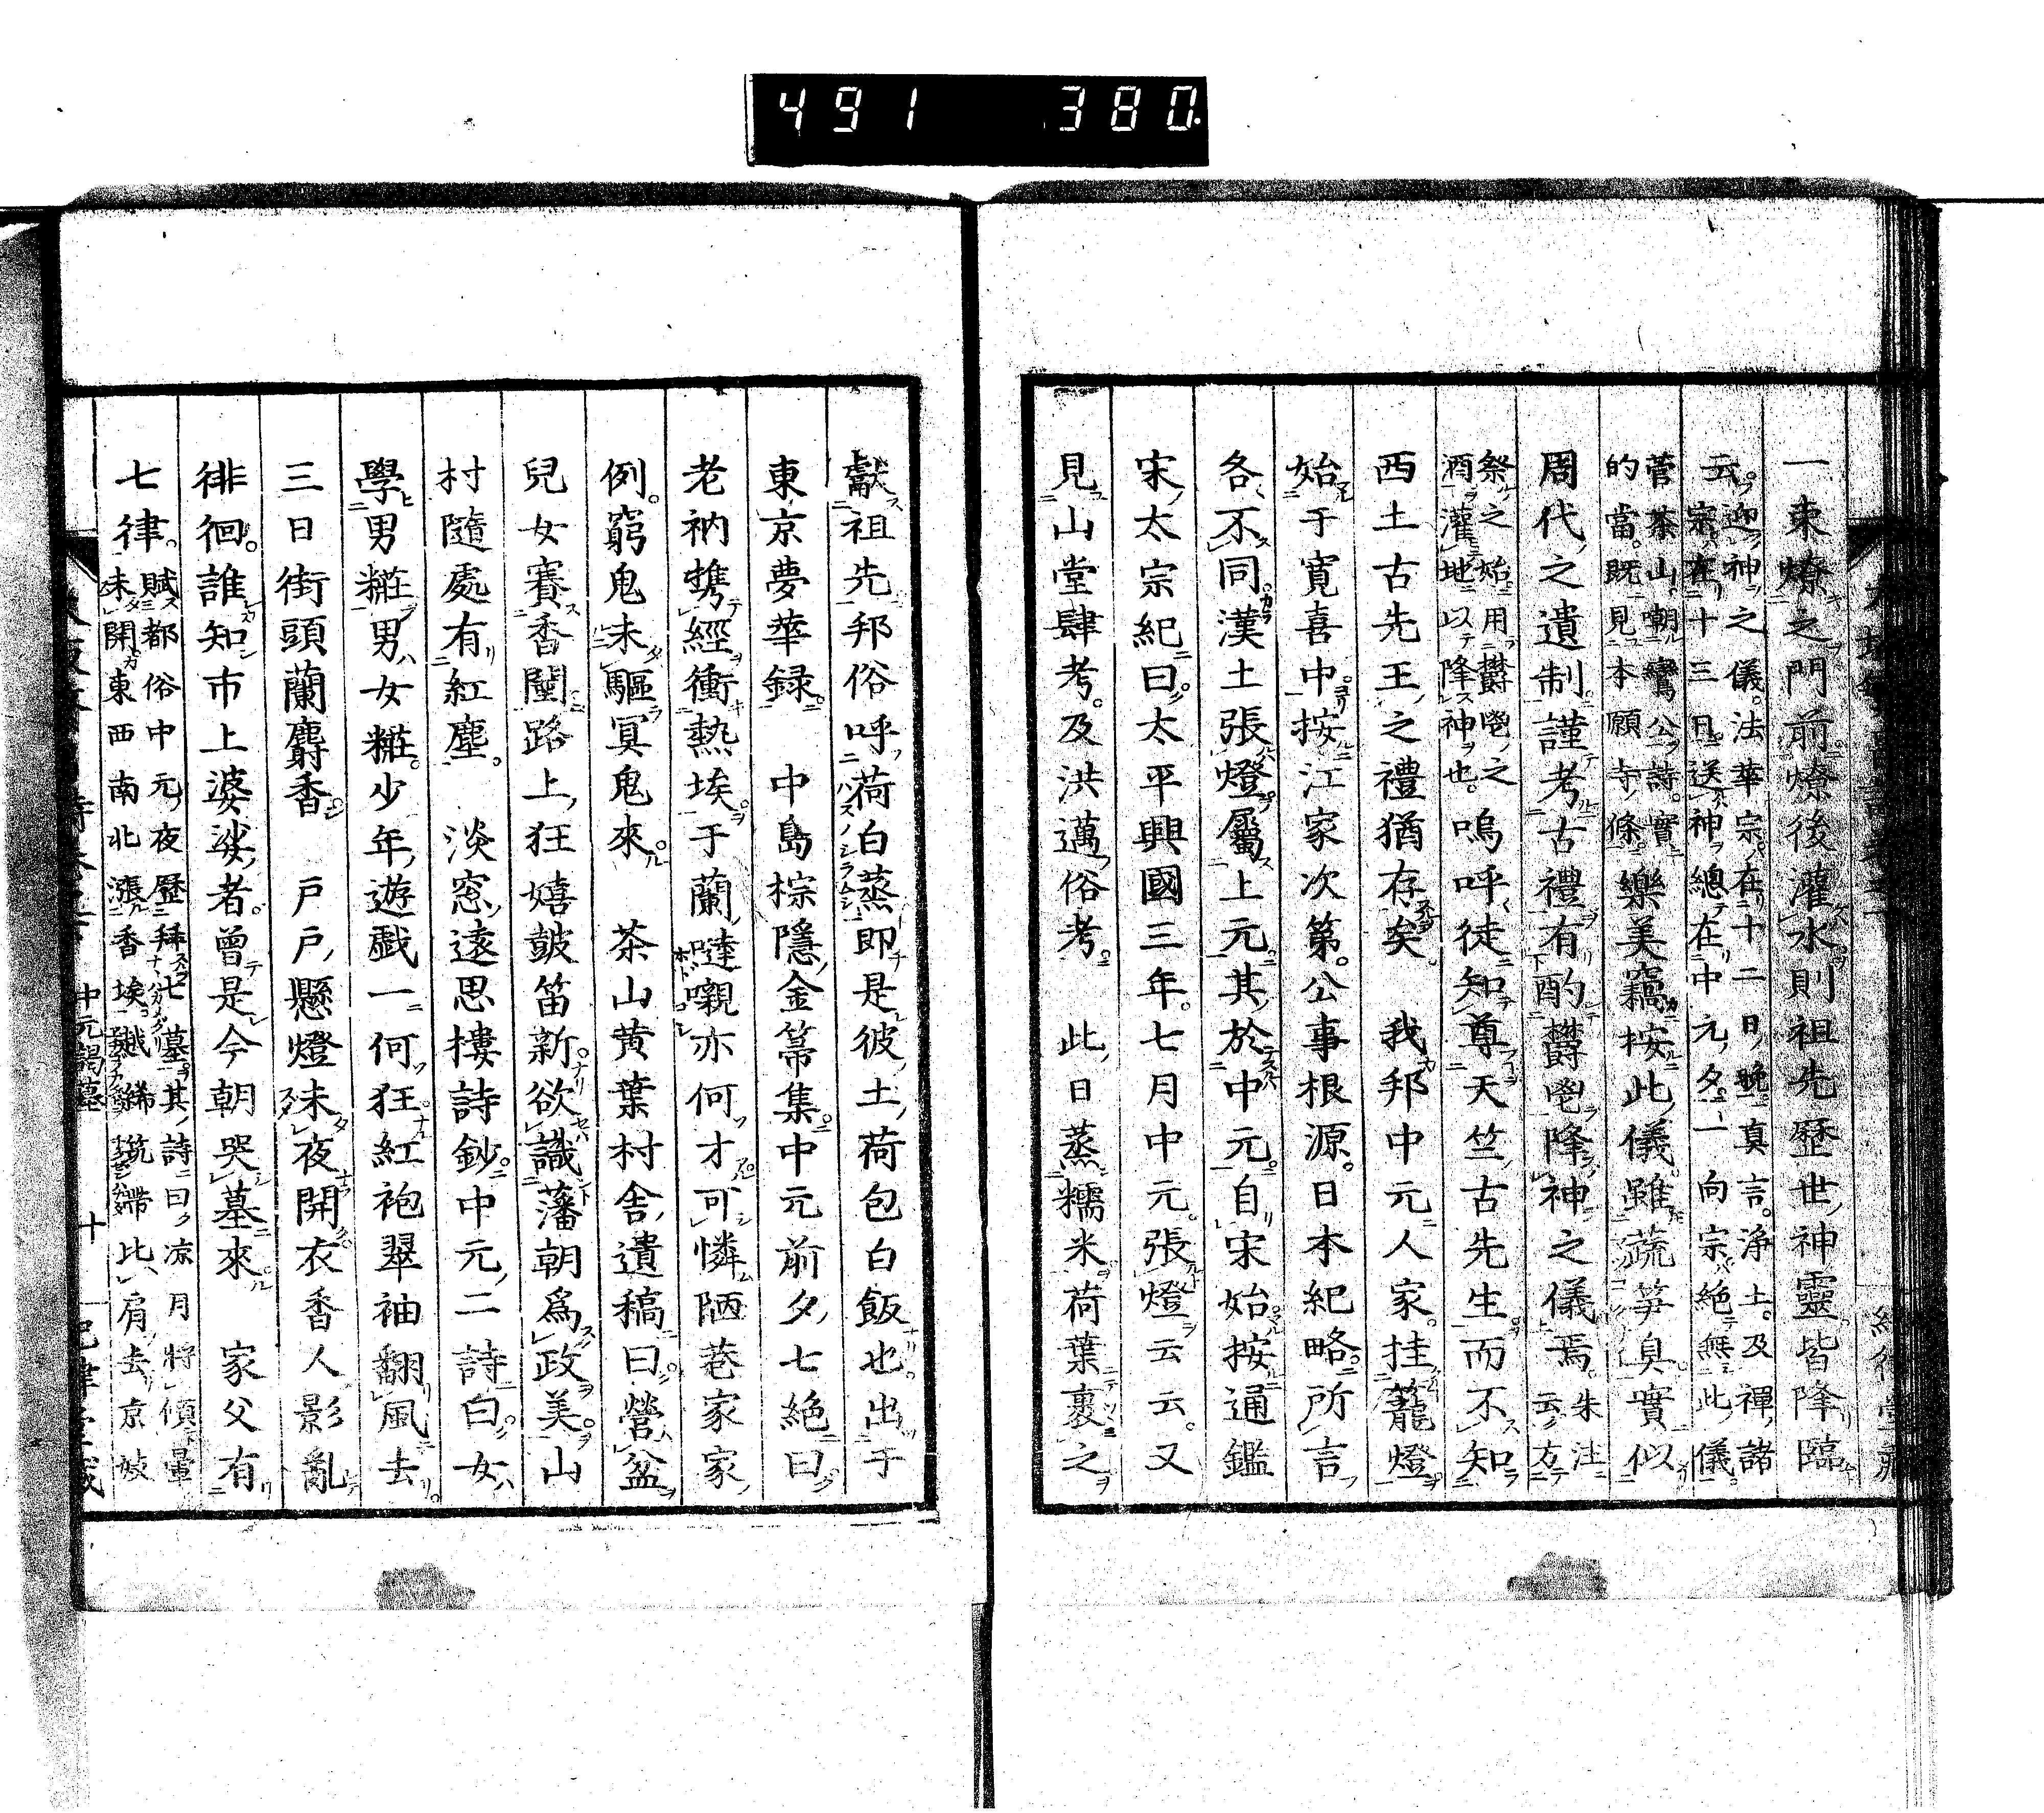 491 380
一束燎之門前燎後灌水則祖先歷世神靈皆降臨
云。迎神之儀。法華宗在十二日晩。真言。淨土。及禪諸
宗在十三日。送神總在中元夕。一向宗絶無此儀
菅茶山。嘲鸞公詩。實
的當。既見本願寺條。樂美竊按此儀雖蔬笋臭實似
周代之遺制。謹考古禮有酌欝鬯降神之儀焉。朱注
云方
祭之始。用欝鬯之
酒灌地以降神也。嗚呼徒知尊天竺古先生而不知
西土古先王之禮猶存矣。我邦中元人家。挂籠燈
始于寛喜中。按江家次第。公事根源。日本紀略。所言
各不同。漢土張燈屬上元。其於中元自宋始。按通鑑
宋太宗紀曰。太平興國三年。七月中元。張燈云云。又
見山堂肆考。及洪邁俗考。此日蒸糯米荷葉裹之
獻祖先邦俗呼荷白蒸即是彼土荷包白飯也。出于
東京夢華録。中島棕隱金箒集。中元前夕七絶曰
老衲携經衝熱埃。于蘭噠嚫亦何才。可憐陋巷家家
例。窮鬼未驅冥鬼來。茶山黄葉村舍遺稿曰。營盆
兒女賽香闉。路上狂嬉鼓笛新。欲識藩朝爲政美。山
村隨處有紅塵。淡窓遠思樓詩鈔。中元二詩曰。女
學男糚男女糚。少年遊戯一何狂。紅袍翠袖翻風去。
三日街頭蘭麝香。戸戸懸燈未夜開。衣香人影亂
徘徊。誰知市上婆娑者。曾是今朝哭墓來。家父有
七律。賦都俗中元夜歷拜七墓其詩曰。凉月將傾暈
未開。東西南北漲香埃。越絺筑帶比肩去京妓
中元謁墓 十